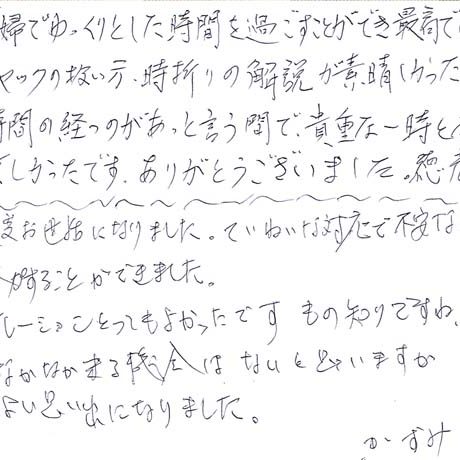 婦でゆっくりとした時間を過ごすことができ最高で
ヤックの扱い方、時折りの解説が素晴しかった
時間の経つのがあっと言う間で、貴重な一時と
しかったです。ありがとうございました。徳
度お世話になりました。ていねいな対応で不安な
することができました。
レーションとってもよかったです もの知りですね、
なかなか来る機会はないと思いますが
よい思い出になりました。
かずみ